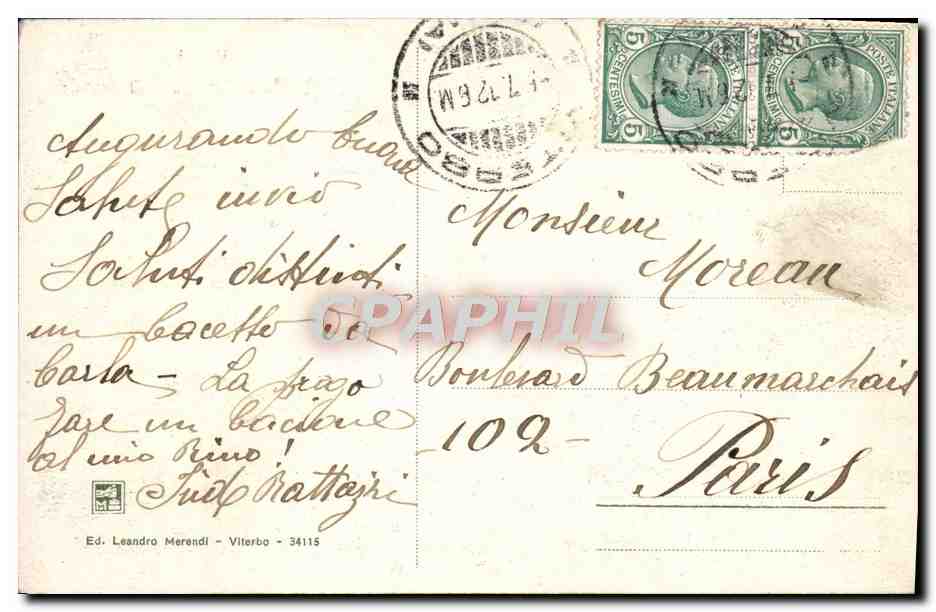 Augurando buona
Salute invio
Saluti distinti
un bacetto da
Carla - La prego
dare un bacione
al mio Rino!
Rattazzi
Ed. Leandro Merendi - Viterbo - 34115
VITERBO
7.12 6 M
5 CENTESIMI 5
POSTE ITALIANE
5 CENTESIMI 5
POSTE ITALIANE
Monsieur
Moreau
Boulevard Beaumarchais
- 102 -
Paris
CPAPHIL